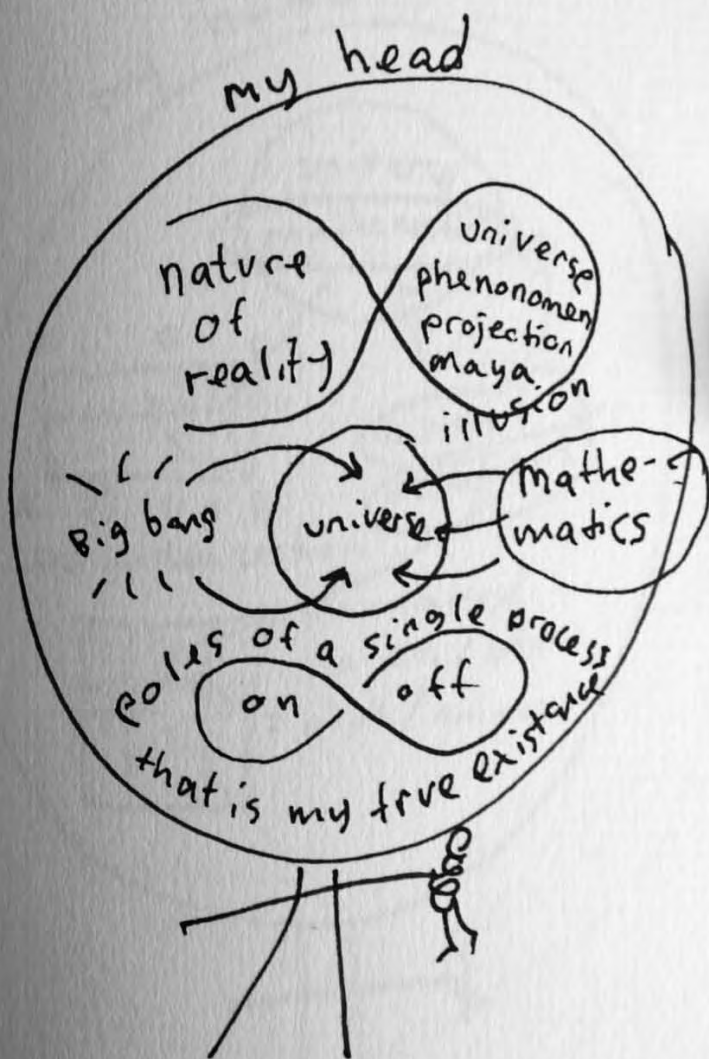 my head
nature
of
reality
universe
phenonomen
projection
maya
illusion
Big bang
universe
mathe-
matics
poles of a single process
on
off
that is my true existance